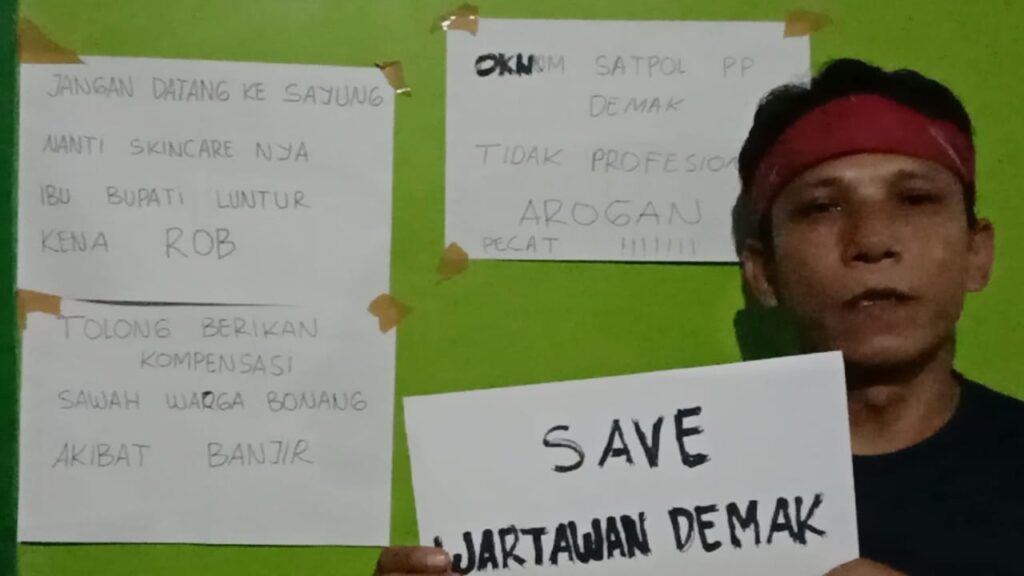 JANGAN DATANG KE SAYUNG
NANTI SKINCARE NYA
IBU BUPATI LUNTUR
KENA ROB
TOLONG BERIKAN
KOMPENSASI
SAWAH WARGA BONANG
AKIBAT BANJIR
OKNNM SATPOL PP
DEMAK
TIDAK PROFESION
AROGAN
PECAT !!!!!!!
SAVE
WARTAWAN DEMAK